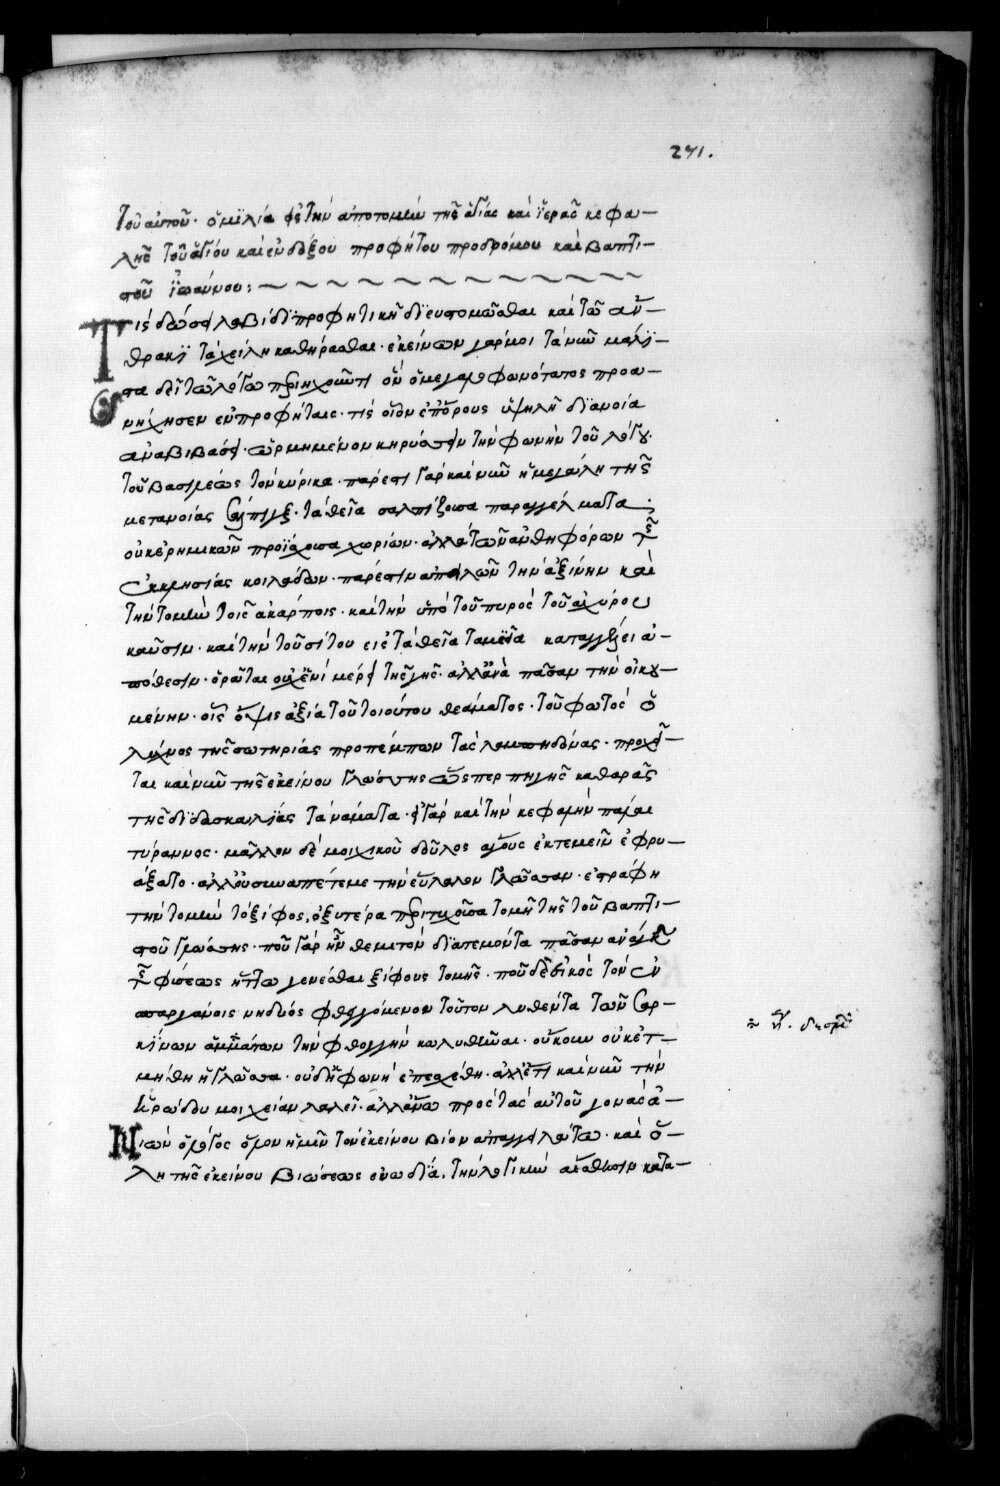 241.
τοῦ αὐτοῦ· ὁμιλία εἰς τὴν ἀποτομὴν τῆς ἁγίας καὶ ἱερᾶς κεφα-
λῆς τοῦ ἁγίου καὶ ἐνδόξου προφήτου προδρόμου καὶ βαπτι-
στοῦ ἰωάννου:
Τίς δώσει λαβίδι προφητικῆ διευστομῶσθαι καὶ τῶ ἄν-
θρακι τὰ χείλη καθήρασθαι· ἐκείνων γὰρ μοι τὰ νῦν μάλι-
στα δεῖ τῶ λόγω περιηχοῦντι ὃν ὁ μεγαλοφωνότατος προα-
νήχησεν ἐν προφήταις· τίς οὖν ἐπ' ὄρους ὑψηλῆ διανοία
ἀναβιβάσει· ὡρμημένον κηρύσσειν τὴν φωνὴν τοῦ λόγου·
τοῦ βασιλέως τὸν κύρικα· πάρεστι γὰρ καὶ νῦν ἡ μεγάλη τῆς
μετανοίας σάλπιγξ· τὰ θεῖα σαλπίζουσα παραγγέλματα
οὐκ ἐρημικῶν προϊάχουσα χωρίων· ἀλλὰ τῶν ἀνθηφόρων τῆς
ἐκκλησίας κοιλάδων· παρέστιν ἀπειλῶν τὴν ἀξίνην καὶ
τὴν τομὴν τοῖς ἀκάρποις· καὶ τὴν ὑπὸ τοῦ πυρὸς τοῦ ἀχύρου
καῦσιν· καὶ τὴν τοῦ σίτου εἰς τὰ θεῖα ταμεῖα καταγγέλλει ἀ-
πόθεσιν· ὁρᾶται οὐχ ἑνὶ μέρει τῆς γῆς· ἀλλ' ἀνὰ πᾶσαν τὴν οἰκου-
μένην· οἷς ὄψις ἀξία τοῦ τοιούτου θεάματος· τοῦ φωτὸς ὁ
λύχνος τῆς σωτηρίας προπέμπων τὰς λαμπηδόνας· προχεῖ-
ται καὶ νῦν τῆς ἐκείνου γλώσσης ὥσπερ πηγῆς καθαρᾶς
τῆς διδασκαλίας τὰ νάματα· εἰ γὰρ καὶ τὴν κεφαλὴν πάλαι
τύραννος· μᾶλλον δὲ μοιχικοῦ δοῦλος ἄγους ἐκτεμεῖν ἐφρυ-
άξατο· ἀλλ' οὐ συναπέτεμε τὴν εὔλαλον γλῶσσαν· ἐστράφη
τὴν τομὴν τὸ ξίφος, ὀξυτέρα περιτυχοῦσα τομῆ τῆς τοῦ βαπτι-
στοῦ γλώσσης· ποῦ γὰρ ἦν θεμιτὸν διατεμόντα πᾶσαν ἀνάγκην
τῆς φύσεως ἥττω γενέσθαι ξίφους τομῆς· ποῦ δὲ εἰκὸς τὸν ἐν
σπαργάνοις νηδύος φθεγγόμενον τοῦτον λυθέντα τῶν σαρ-
κίνων ἁμμάτων τὴν φθογγὴν κωλυθῆναι· οὔκουν οὐκ ἐτ-
μήθη ἡ γλῶσσα· οὐδ' ἡ φωνὴ ἐπεσχέθη· ἀλλ' ἔτι καὶ νῦν τὴν
ἡρώδου μοιχείαν λαλεῖ· ἀλλ' ἄνω πρὸς τὰς αὐτοῦ γονὰς ἀ-
νιὼν ὁ λόγος ὅλον ἡμῖν τὸν ἐκείνου βίον ἀπαγγελλέτω· καὶ ὅ-
λη τῆς ἐκείνου βιώσεως εὐωδία, τὴν λογικὴν αἴσθησιν κατα-